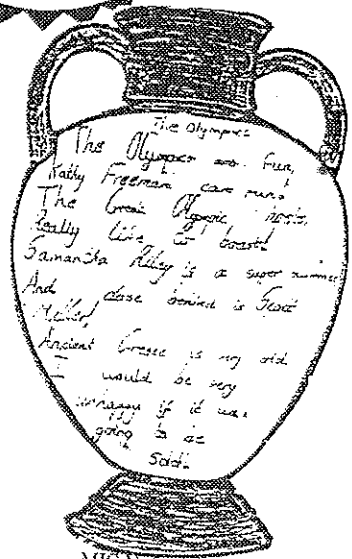 The Olympics
The Olympics are fun,
Kathy Freeman can run,
The Great Olympic hosts,
Really like to boast!
Samantha Riley is a super swimmer
And close behind is Scott
Miller,
Ancient Greece is very old
I would be very
unhappy if it was
going to be
Sold.